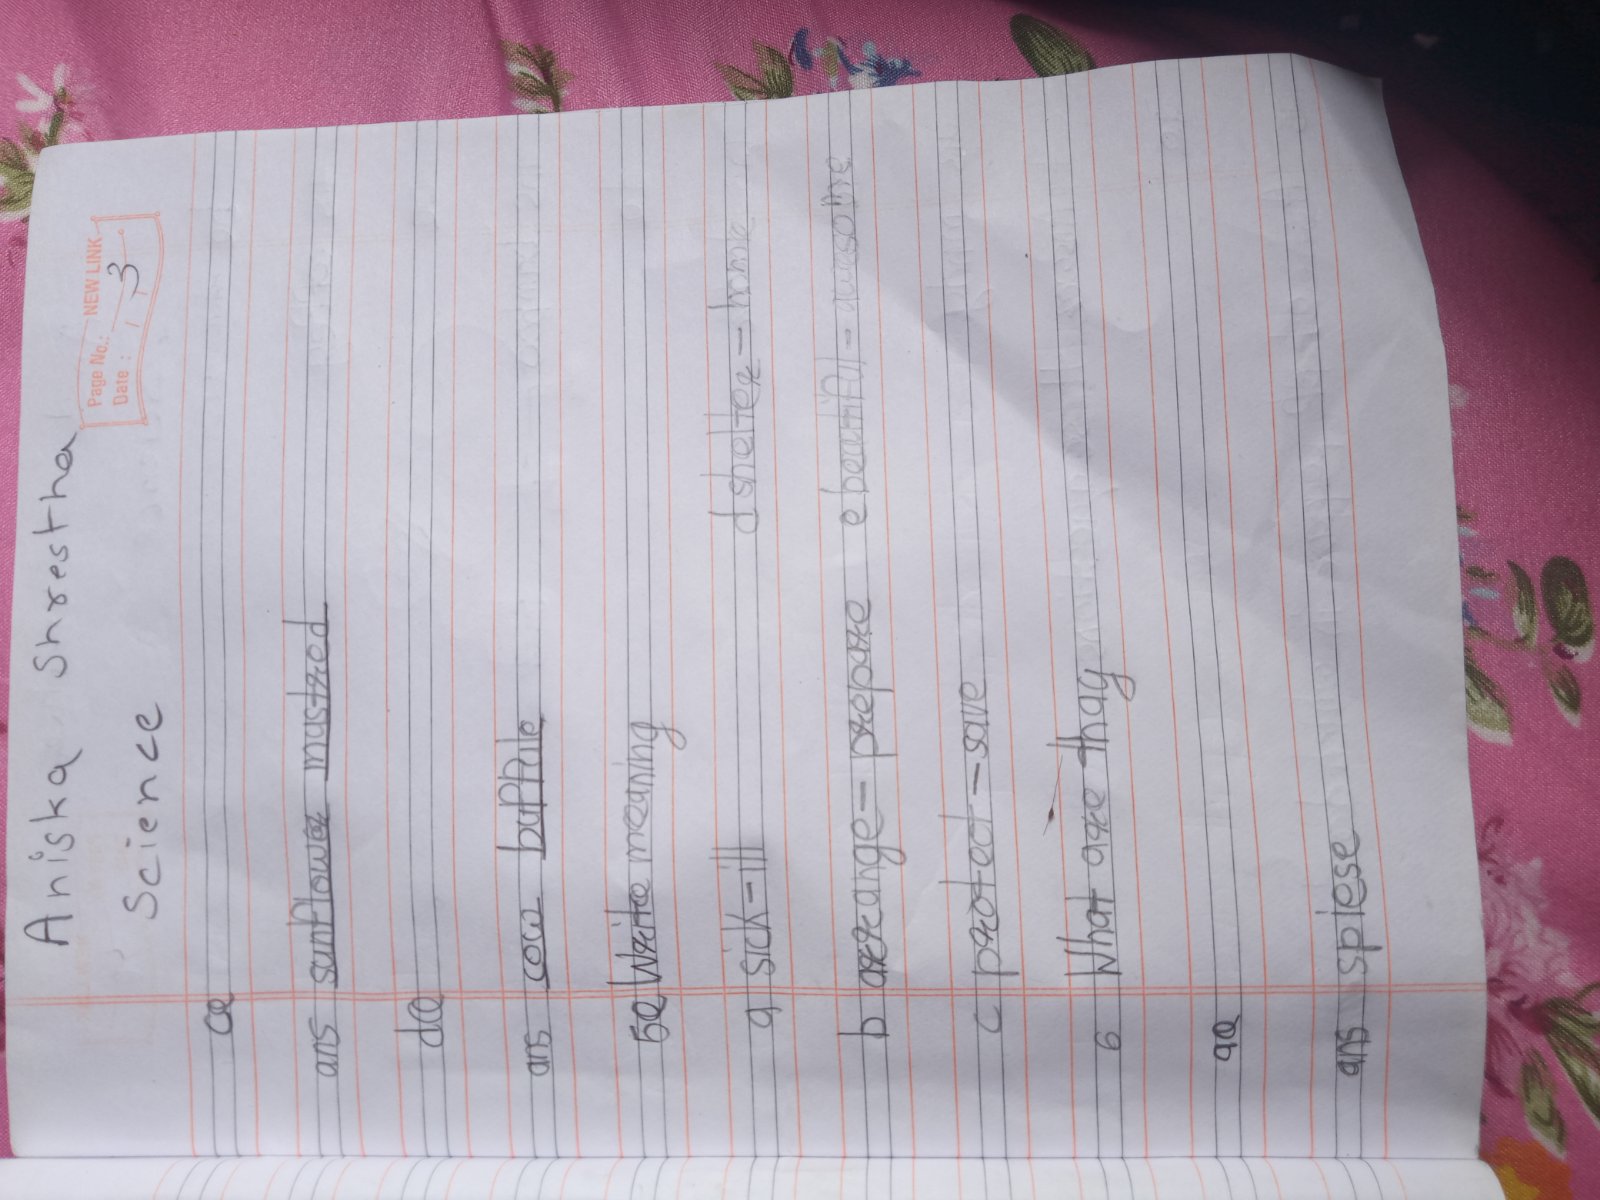 Aniska Shrestha
Page No.: NEW LINK
Date: 3
Science
cQ
ans sunflower mustred
dQ
ans cow buffule
5Q Write meaning
a sick-ill d shelter-home
b arrange-prepare e beautiful-awesome
c protect-save
6 What are thay
aQ
ans spiese